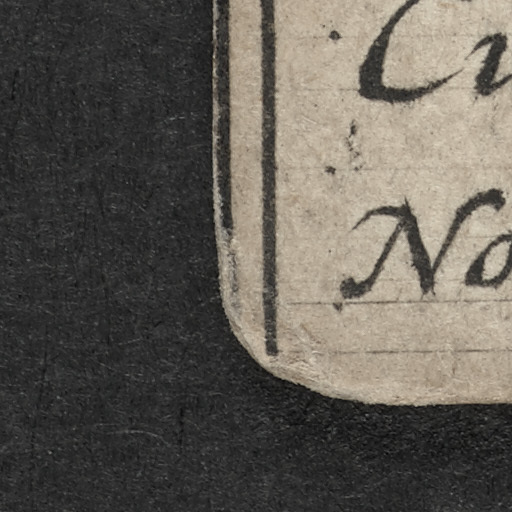 Cu
No